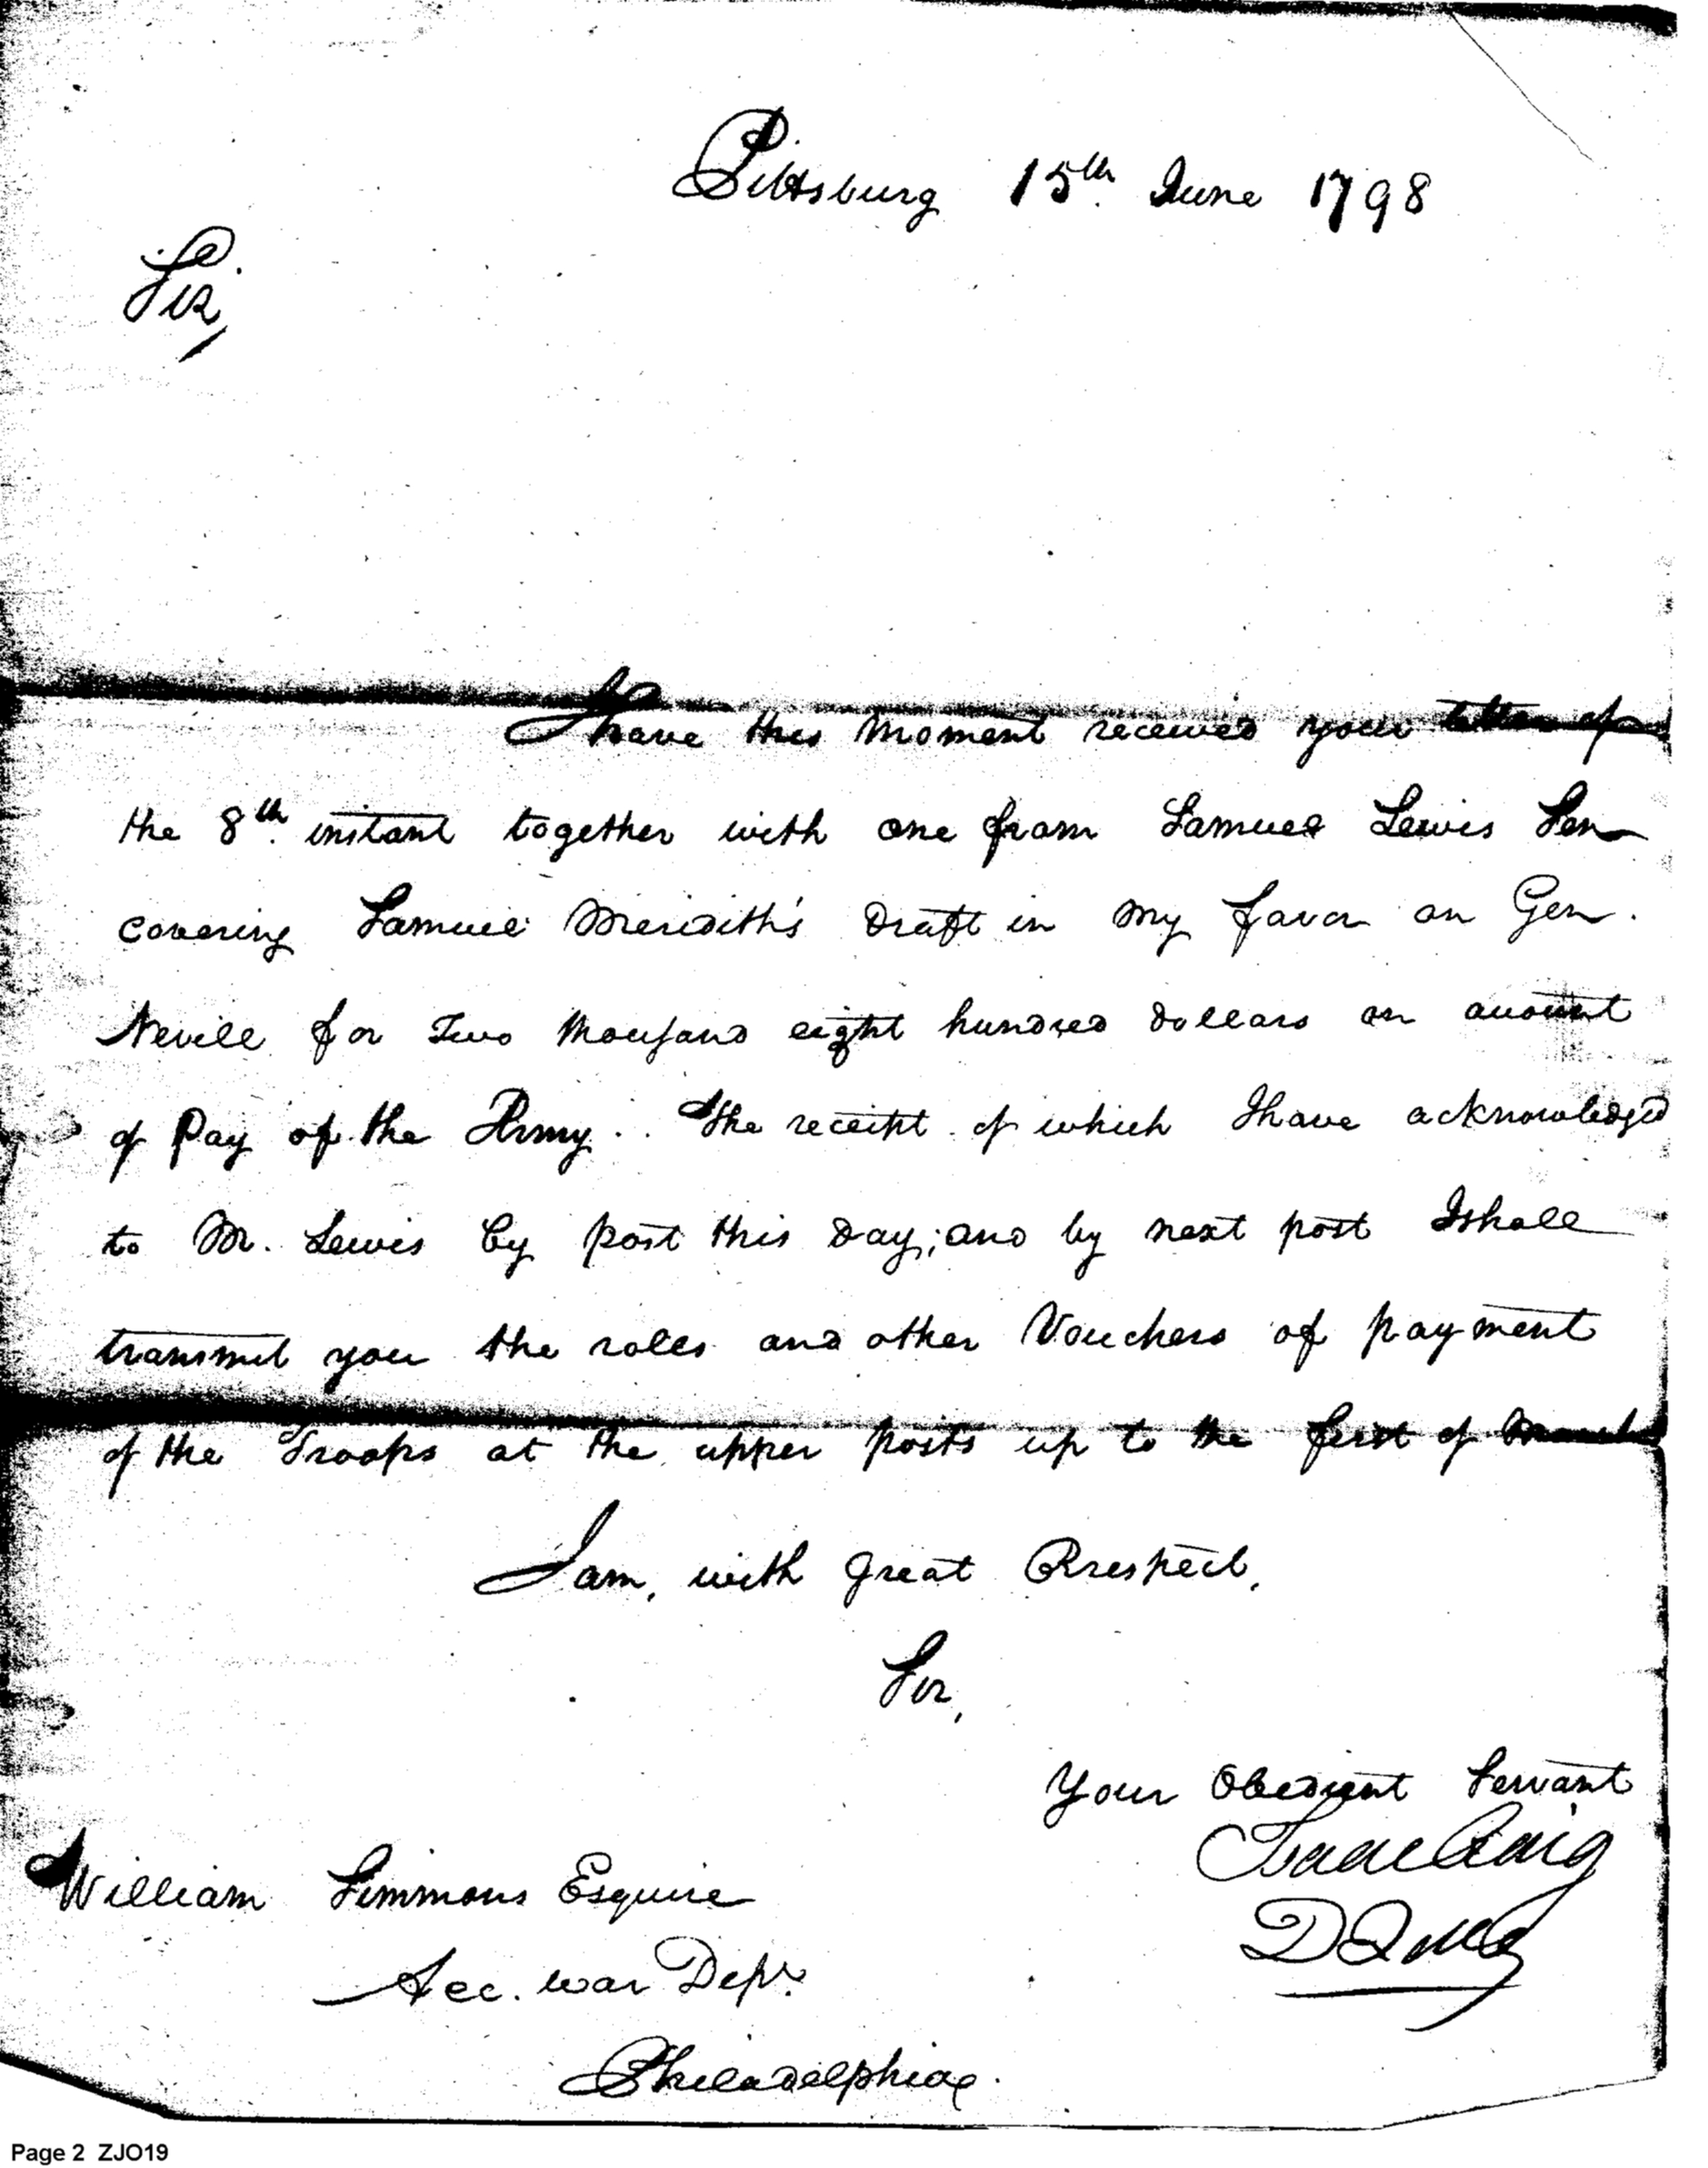 Pittsburg 15th June 1798
Sir,
I have this Moment received your letter of
the 8th instant together with one from Samuel Lewis Sen
covering Samuel Meredith's Draft in my favor on Gen.
Nevill for Two thousand eight hundred dollars on account
of Pay of the Army.. The receipt of which I have acknowledged
to Mr. Lewis by post this Day; and by next post I shall
transmit you the roles and other Vouchers of payment
of the Troops at the upper posts up to the first of March
I am, with great Rrespect,
Sir,
Your Obedient Servant
Isaac Craig
DQMG
William Simmons Esquire
Acc. War Dept.
Philadelphia.
Page 2 ZJO19